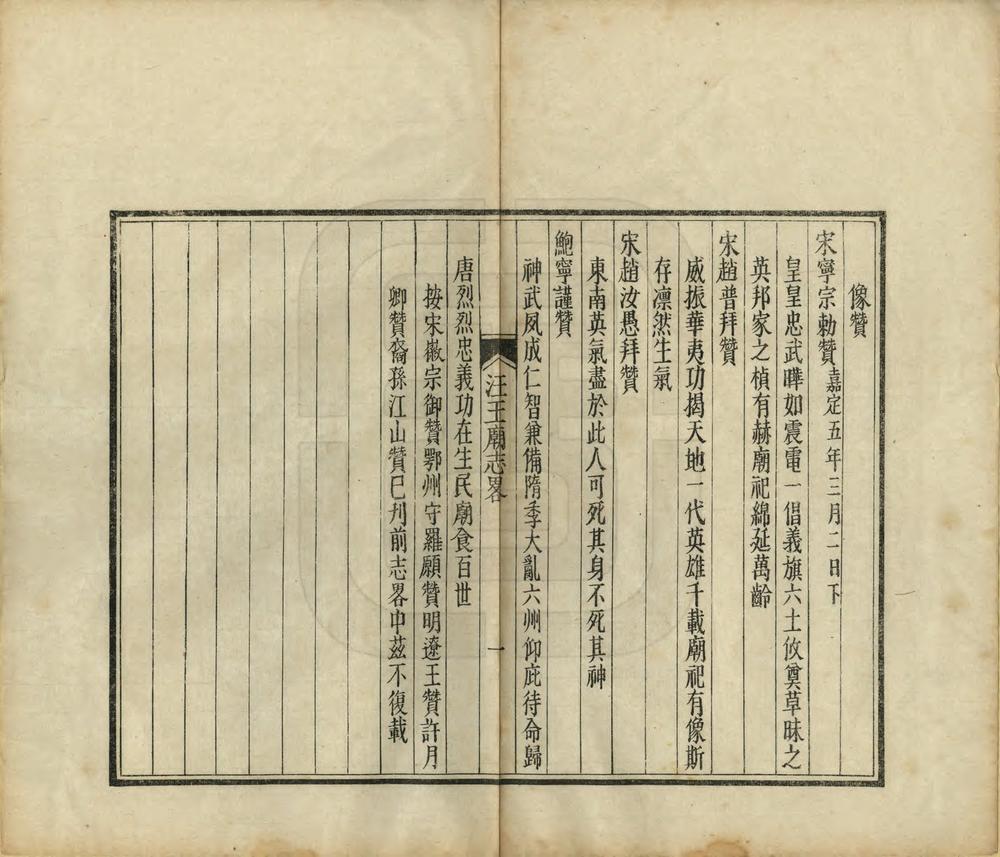 像贊
宋寧宗勅贊嘉定五年三月二日下
皇皇忠武曄如震電一倡義旗六土攸奠草昧之
英邦家之楨有赫廟祀綿延萬齡
宋趙普拜贊
威振華夷功揭天地一代英雄千載廟祀有像斯
存凛然生氣
宋趙汝愚拜贊
東南英氣盡於此人可死其身不死其神
鮑寧謹贊
神武夙成仁智兼備隋季大亂六州仰庇待命歸
汪王廟志畧
一
唐烈烈忠義功在生民廟食百世
按宋徽宗御贊鄂州守羅願贊明遼王贊許月
卿贊裔孫江山贊已刋前志畧中茲不復載